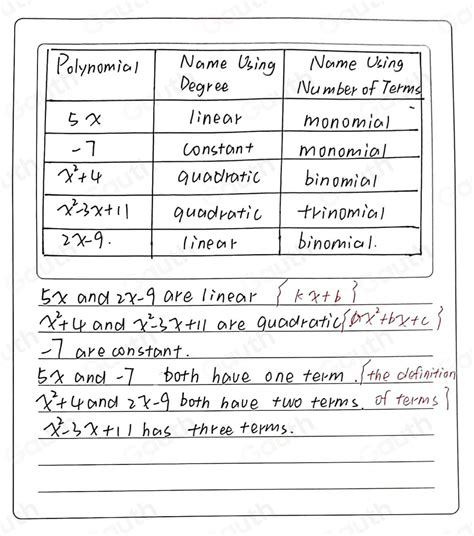 Polynomial Name Using Degree Name Using Number of Terms
5x linear monomial
-7 constant monomial
x²+4 quadratic binomial
x²-3x+11 quadratic trinomial
2x-9. linear binomial.
5x and 2x-9 are linear {kx+b}
x²+4 and x²-3x+11 are quadratic {ax²+bx+c}
-7 are constant.
5x and -7 both have one term. {the definition
x²+4 and 2x-9 both have two terms. of terms}
x²-3x+11 has three terms.